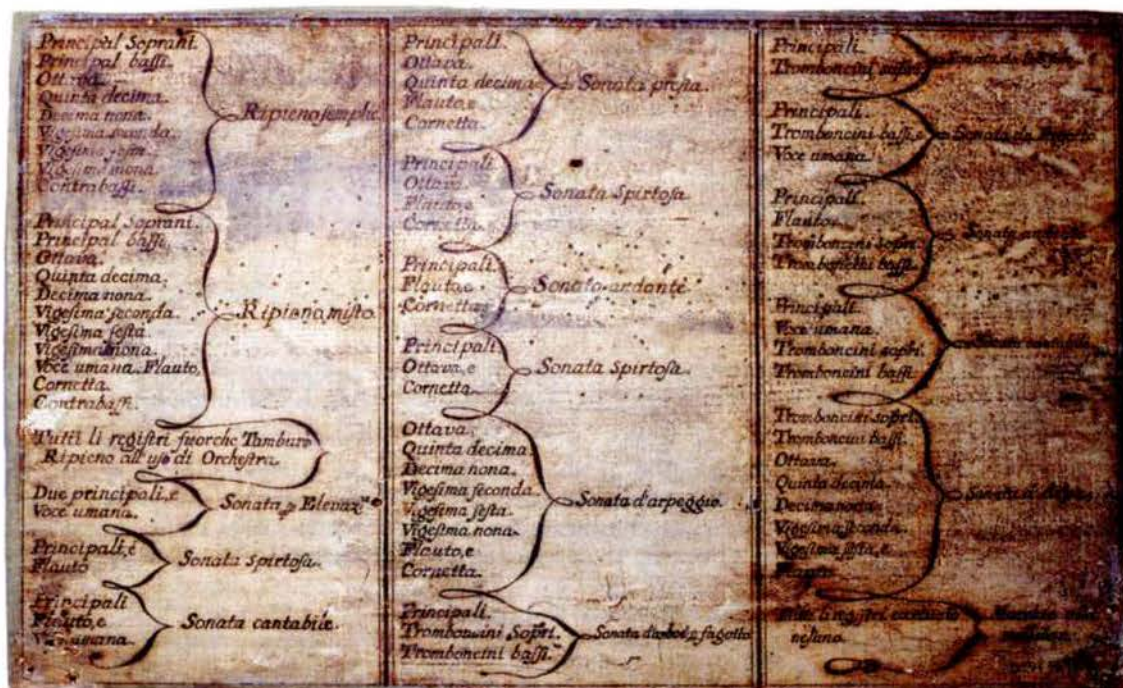 Principal Soprani.
Principal baſſi.
Ottava.
Quinta decima.
Decima nona.
Vigeſima ſeconda.
Vigeſima ſeſta.
Vigeſima nona.
Contrabaſſi.
Ripieno ſemplic.
Principal Soprani.
Principal baſſi.
Ottava.
Quinta decima.
Decima nona.
Vigeſima ſeconda.
Vigeſima ſeſta.
Vigeſima nona.
Voce umana. Flauto,
Cornetta.
Contrabaſſi.
Ripieno miſto.
Tutti li regiſtri fuorche Tamburo
Ripieno all'uſo di Orcheſtra.
Due principali, e
Voce umana.
Sonata Elevaz
Principali, é
Flauto
Sonata ſpirtoſa.
Principali
Flauto, e
Voce umana.
Sonata cantabile.
Principali.
Ottava.
Quinta decima
Flauto, e
Cornetta.
Sonata preſta.
Principali
Ottava.
Flauto, e
Cornetta.
Sonata Spirtoſa
Principali.
Flauto, e
Cornetta
Sonata andante
Principali
Ottava, e
Cornetta.
Sonata Spirtoſa.
Ottava,
Quinta decima
Decima nona.
Vigeſima ſeconda.
Vigeſima ſeſta.
Vigeſima nona.
Flauto, e
Cornetta.
Sonata d'arpeggio.
Principali.
Tromboncini Sopri.
Tromboncini baſſi.
Sonata fagotto
Principali.
Tromboncini
Sonata
Principali.
Tromboncini baſſi, e
Voce umana.
Sonata da fagotto
Principali.
Flauto.
Tromboncini ſopri.
Tromboncini baſſi.
Sonata
Principali.
Voce umana.
Tromboncini ſopri.
Tromboncini baſſi.
Tromboncini ſopri.
Tromboncini baſſi.
Ottava.
Quinta decima.
Decima nona.
Vigeſima ſeconda.
Vigeſima ſeſta, e
Sonata
li regiſtri
neſſuno.